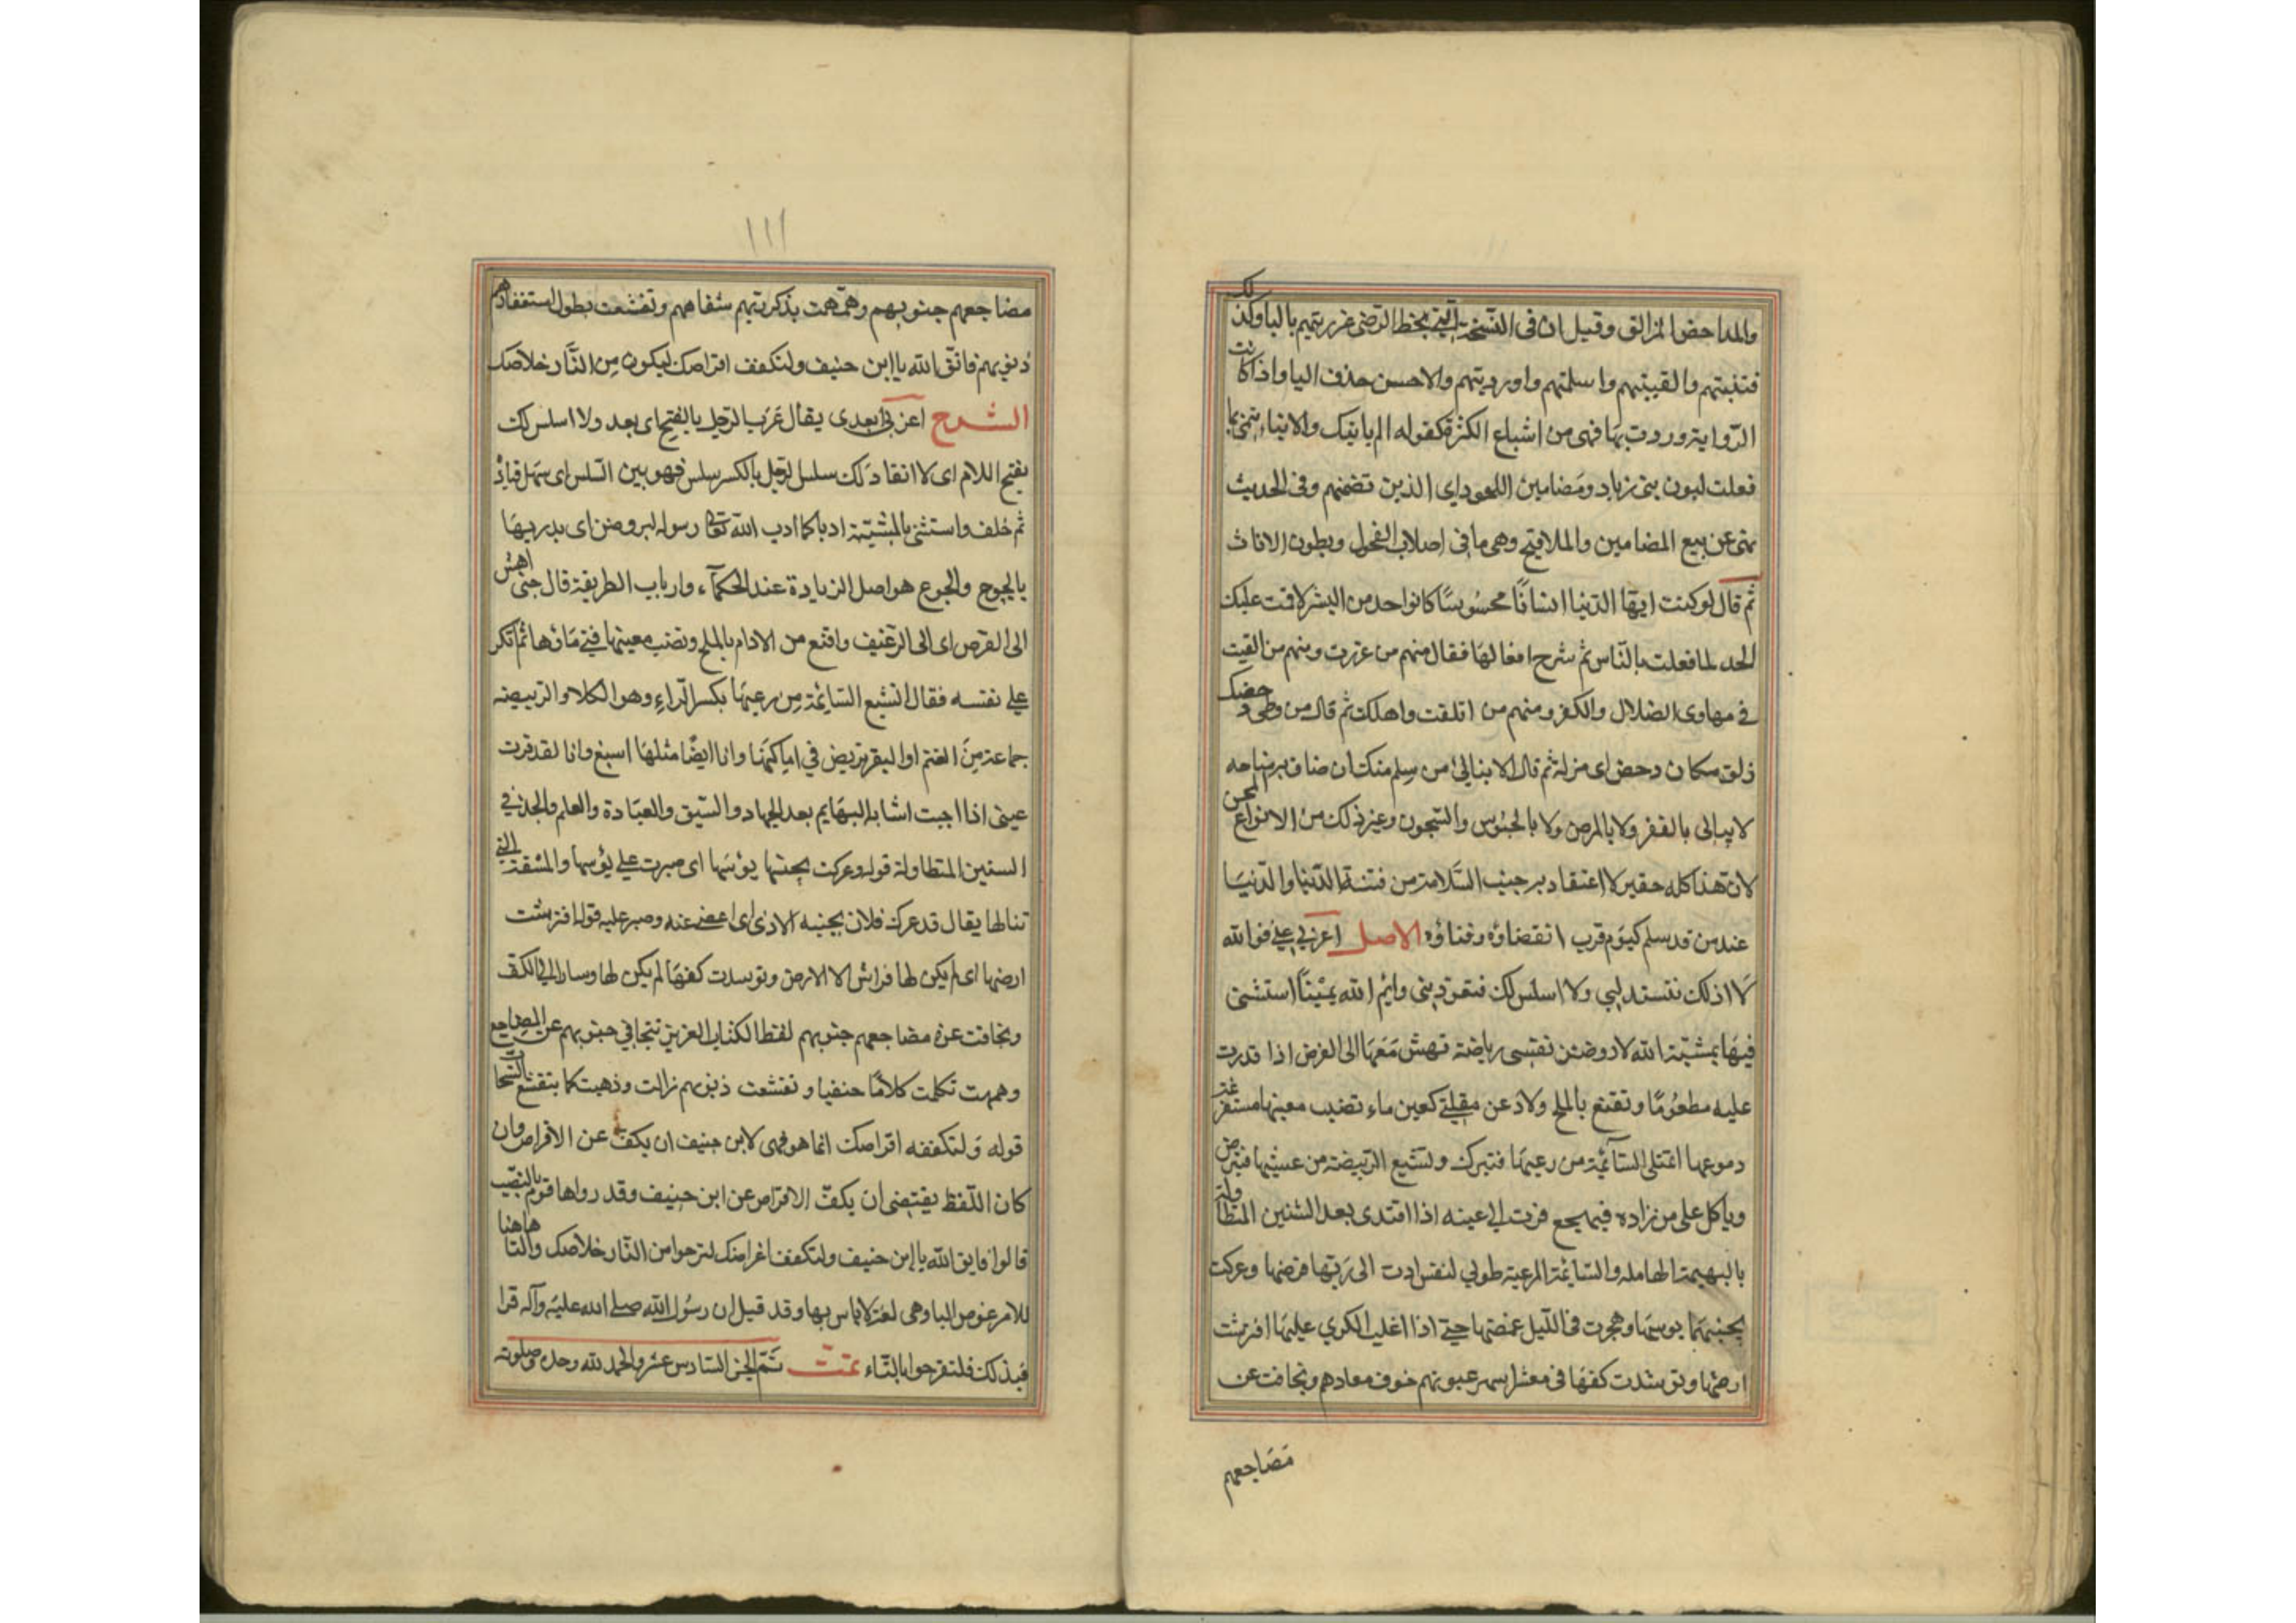 والمداحض المزالق وقيل ان فى النسخة التى بخط الرضى غررتيهم بالياو كذلك
فتنتيهم والقيتيهم واسلمتيهم واوردتيهم والاحسن حذف اليا واذا كانت
الرواية وردت بها فهى من اشباع الكثرة كقوله الم ياتيك والانباء تنمى بما
فعلت لبون بنى زياد ومضامين اللحود اى الذين تضمنهم وفى الحديث
نهى عن بيع المضامين والملاقيح وهى ما فى اصلاب الفحول وبطون الاناث
ثم قال لو كنت ايتها الدنيا انسانا محسوسا كالواحد من البشر لاقمت عليك
الحد لما فعلت بالناس ثم شرح افعالها فقال منهم من غررت ومنهم من القيت
فى مهاوى الضلال والكفر ومنهم من اتلفت واهلكت ثم قال من وطى دحضك
زلق مكان دحض اى مزلة ثم قال لا يبالى من سلم منك ان ضاق به مناخه
لا يبالى بالفقر ولا بالمرض ولا بالحبوس والسجون وغير ذلك من الانواع المحن
لان هذا كله حقير لا اعتقاد به جنب السلامة من فتنة الدنيا والدنيا
عند من قد سلم كيوم قرب انقضاؤه وفناؤه الاصل اعزبى عنى فوالله
لا اذل لك فتستذلينى ولا اسلس لك فتقودينى وايم الله يمينا استثنى
فيها بمشية الله لاروضن نفسى رياضة تهش معها الى القرص اذا قدرت
عليه مطعوما وتقنع بالملح ولادعن مقلتى كعين ماء نضب معينها مستفرغة
دموعها اتمتلى السائمة من رعيها فتبرك وتشبع الربيضة من عشبها فتربض
وياكل على من زاده فيهجع قرت اذا عينه اذا اقتدى بعد السنين المتطاولة
بالبهيمة الهاملة والسائمة المرعية طوبى لنفس ادت الى ربها فرضها وعركت
بجنبها بوسها وهجرت فى الليل غمضها حتى اذا غلب الكرى عليها افترشت
ارضها وتوسدت كفها فى معشر اسهر عيونهم خوف معادهم وتجافت عن
مضاجعهم
١١١
مضاجعهم جنوبهم وهمهمت بذكر ربهم شفاههم وتقشعت بطول استغفارهم
ذنوبهم فاتق الله يا ابن حنيف ولتكفف اقراصك ليكون من النار خلاصك
الشرح اعزبى ابعدى يقال عزب الرجل بالفتح اى بعد ولا اسلس لك
بفتح اللام اى لا انقاد لك سلس الرجل بالكسر سلس فهو بين السلس اى سهل قياده
ثم حلف واستثنى بالمشيئة ادبا كما ادب الله تعالى رسوله ليروضن اى يدربها
بالجوع والجوع هو اصل الزيادة عند الحكمآء وارباب الطريقة قال حتى اهش
الى القرص اى الى الرغيف واقنع من الادام بالملح ونضب معينها فنى ماؤها ثم انكر
على نفسه فقال اتشبع السائمة من رعيها بكسر الراء وهو الكلاء والربيضة
جماعة من الغنم او البقر تربض فى اماكنها وانا ايضا مثلها اشبع وانا لقد قرت
عينى اذا اجبت اشابه البهايم بعد الجهاد والسبق والعبادة والعلم والجد فى
السنين المتطاولة قوله وعركت بجنبها بؤسها اى صبرت على بؤسها والمشقة التى
تنالها يقال قد عرك فلان بجنبه الاذى اى اغضى عنه وصبر عليه قوله افترشت
ارضها اى لم يكن لها فراش الا الارض وتوسدت كفها لم يكن لها وساد الا الكف
وتجافت عن مضاجعهم جنوبهم لفظ الكتاب العزيز تتجافى جنوبهم عن المضاجع
وهمهمت تكلمت كلاما خفيا وتقشعت ذنوبهم زالت وذهبت كما يتقشع السحاب
قوله ولتكففه اقراصك انما هو نهى لابن حنيف ان يكف عن الاقراص وان
كان اللفظ يقتضى ان يكف الاقراص عن ابن حنيف وقد رواها قوم بالنصب
قالوا فاتق الله يا ابن حنيف ولتكفف اقراصك لترجوا من النار خلاصك والتا هاهنا
للامر عوض اليا وهى لغة لاباس بها وقد قيل ان رسول الله صلى الله عليه وآله قرا
فبذلك فلتفرحوا بالتاء تمت تم الجزء السادس عشر والحمد لله وحده وصلوته